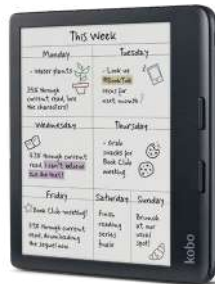 This Week
Monday
- Water plants
35% through
current read, love
the characters!
Tuesday
- Look up
#BookTok
ideas for
next month!
Wednesday
57% through current
read, I can't
out the text!
Thursday
- Grab
snacks for
Book Club
meeting
Friday
Book Club meeting!
current read, downloading
the sequel now
Saturday
Finish
reading
series
finale
Sunday
Brunch
at our
usual
spot!
kobo